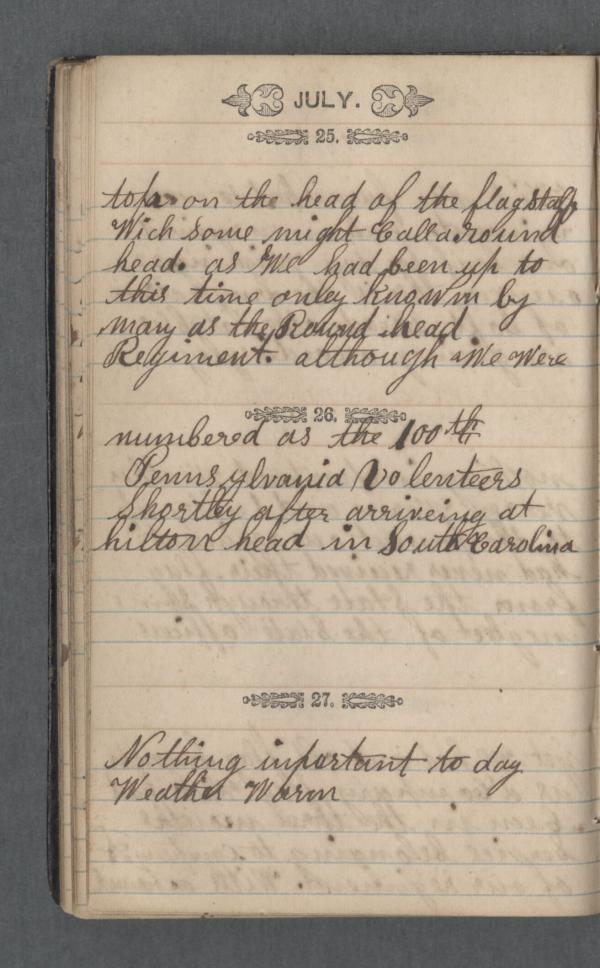 JULY.
25.
top on the head of the flagstaff
Wich some might Call a round
head. as We had been up to
this time onley Knowm by
many as the Round head
Regiment. although We Were
26.
numbered as the 100th
Pennsylvania Volenteers
Shortley after arriveing at
hilton head in South Carolina
27.
Nothing inportant to day
Weather Warm